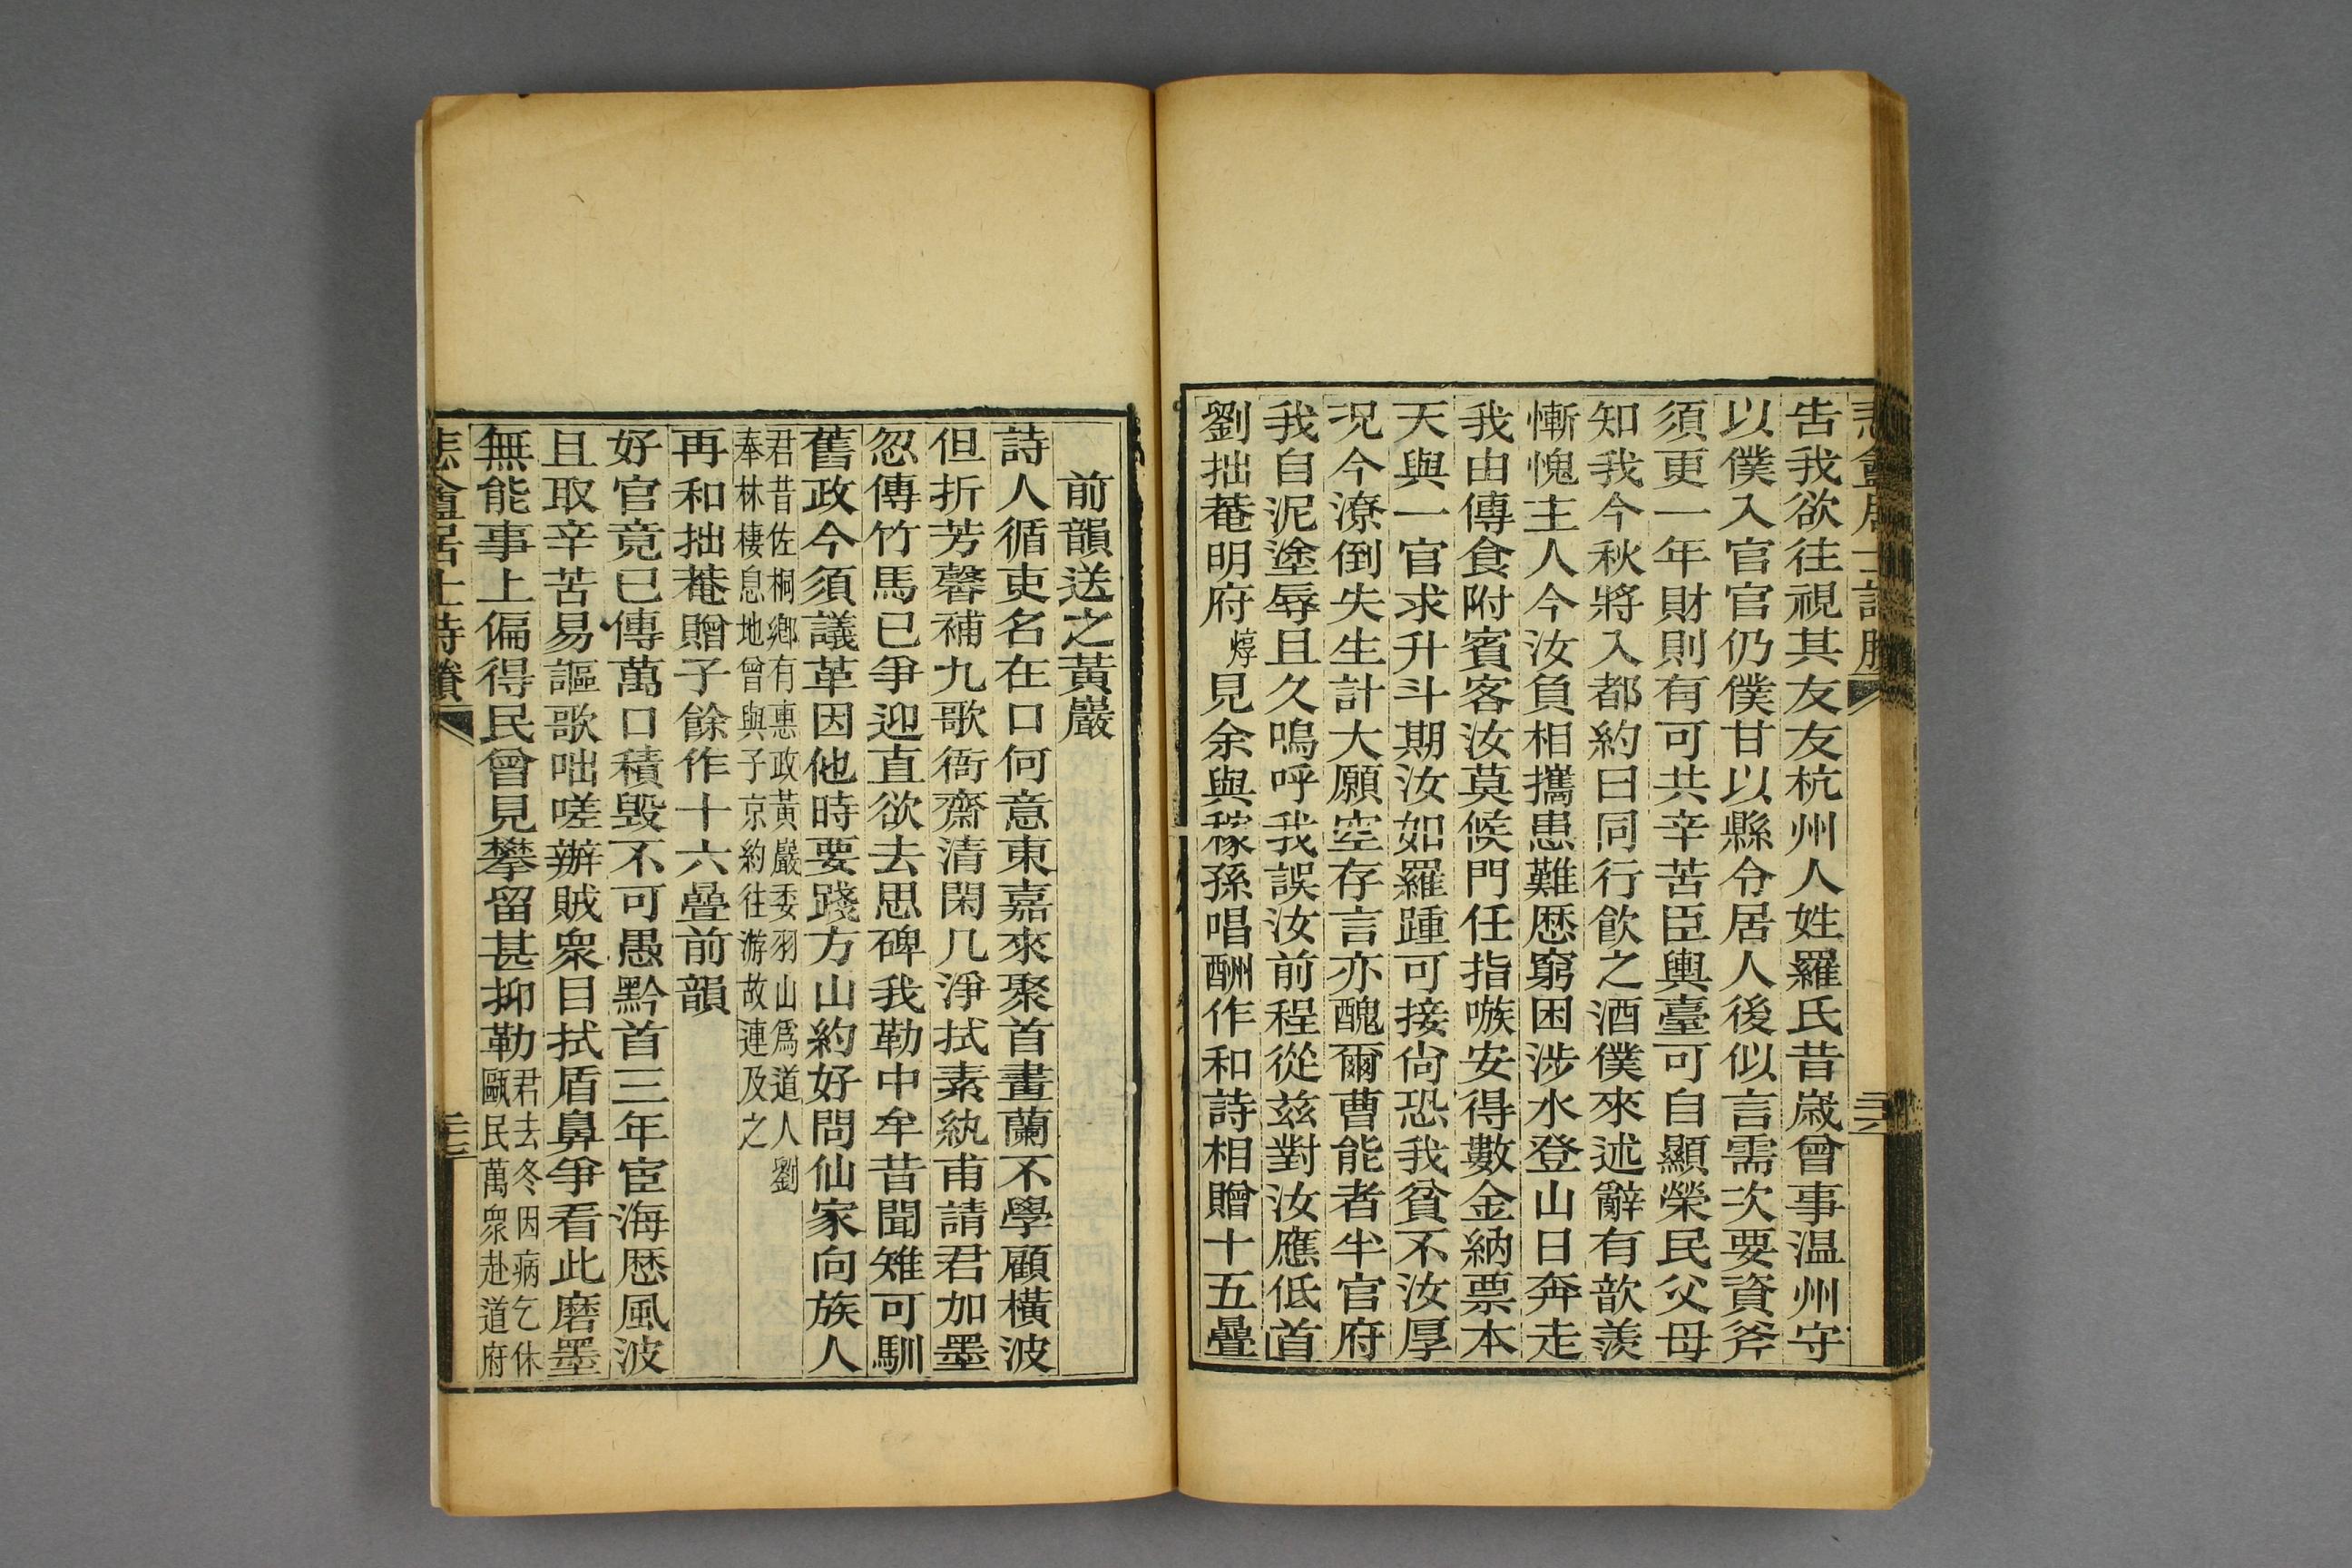 告我欲往視其友友杭州人姓羅氏昔歲曾事温州守
以僕入官官仍僕甘以縣令居人後似言需次要資斧
須更一年財則有可共辛苦臣輿臺可自顯榮民父母
知我今秋將入都約日同行飲之酒僕來述辭有歆羨
慚愧主人今汝負相攜患難歷窮困涉水登山日奔走
我由傳食附賓客汝莫候門任指嗾安得數金納票本
天與一官求升斗期汝如羅踵可接尙恐我貧不汝厚
况今潦倒失生計大願空存言亦醜爾曹能者半官府
我自泥塗辱且久嗚呼我誤汝前程從兹對汝應低首
劉拙菴明府焞見余與稼孫唱酬作和詩相贈十五疊
前韻送之黃巖
詩人循吏名在口何意東嘉來聚首畫蘭不學顧橫波
但折芳馨補九歌衙齋清閑几淨拭素紈甫請君加墨
忽傳竹馬已爭迎直欲去思碑我勒中牟昔聞雉可馴
舊政今須議革因他時要踐方山約好問仙家向族人
君昔佐桐鄉有惠政黃巖委羽山爲道人劉
奉林棲息地曾與子京約往游故連及之
再和拙菴贈子餘作十六疊前韻
好官竟已傳萬口積毀不可愚黔首三年宦海歷風波
且取辛苦易謳歌咄嗟辦賊衆目拭盾鼻爭看此磨墨
無能事上偏得民曾見攀留甚抑勒君去冬因病乞休
甌民萬衆赴道府
悲盦居士詩賸